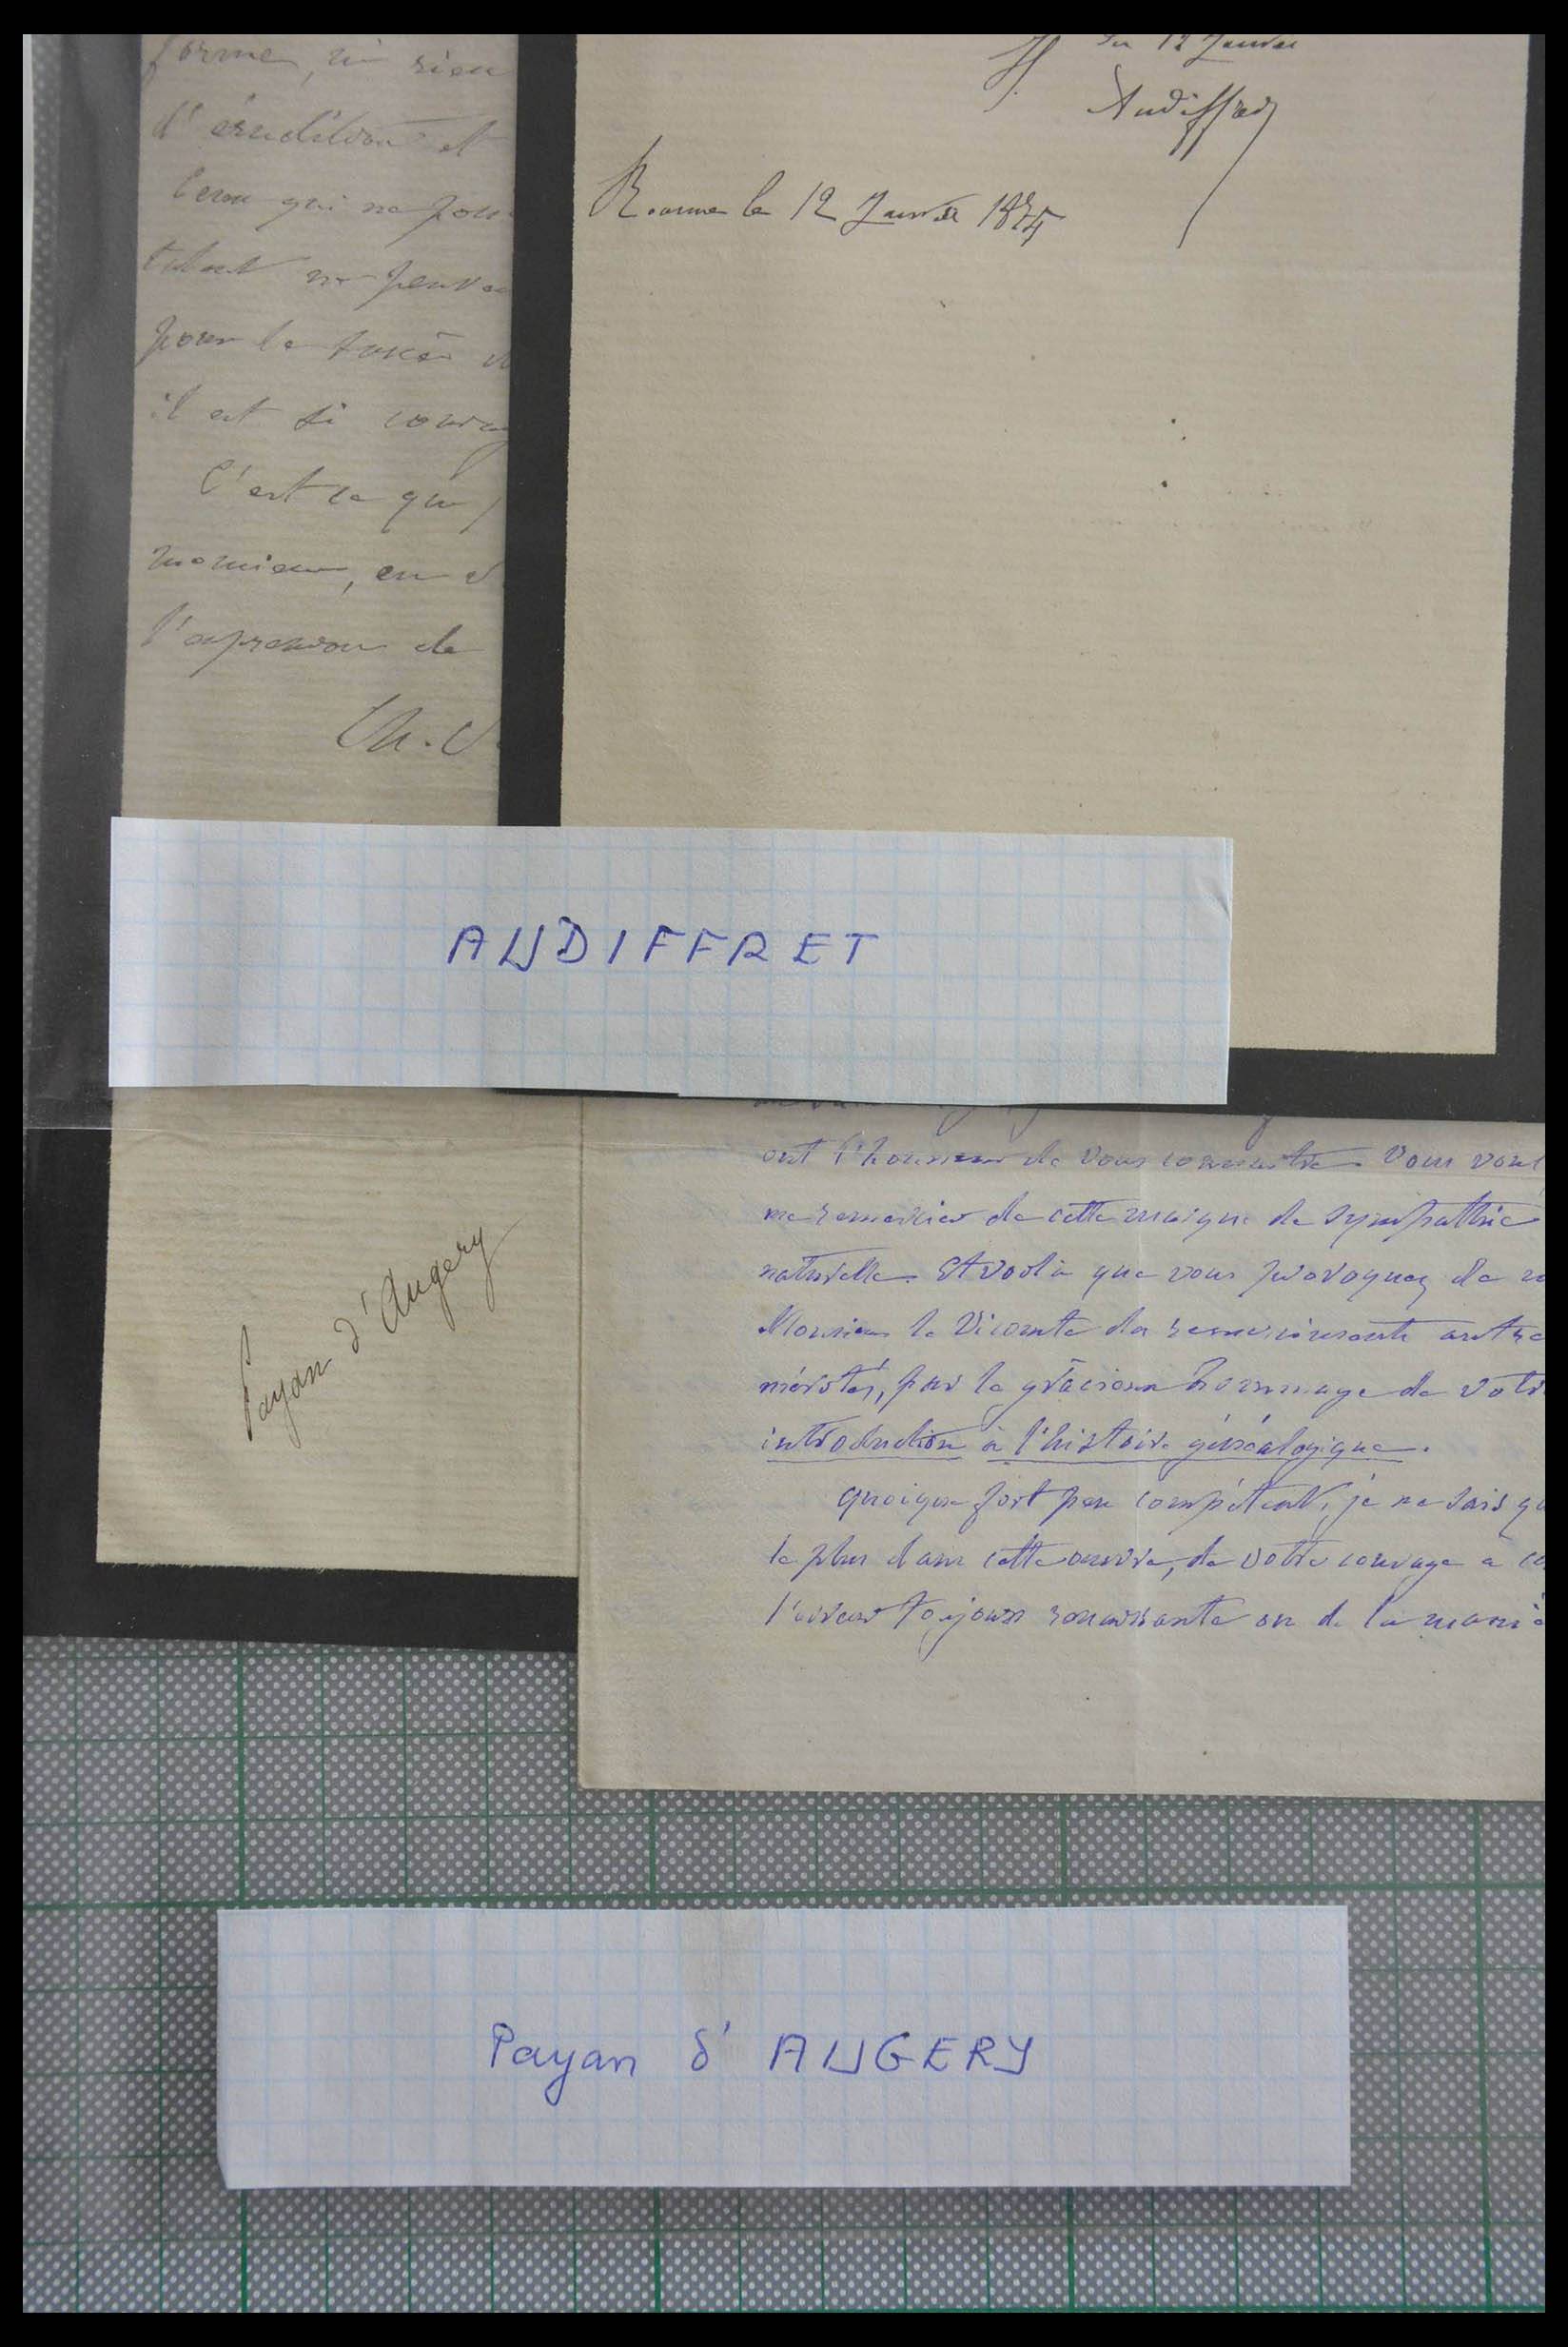 forme, ni rien
d'érudition et
ceux qui ne pou
talent ne peuve
pour la
il est si courag
C'est ce que j
monsieur, en v
l'expression de
Ch. V
12 Janvier
Audiffred
Roanne le 12 Janvier
AUDIFFRET
Payan d'Augery
ont l'honneur de vous connaitre. Vous voul
me remercier de cette marque de sympathie
naturelle. Et voilà que vous provoquez de
Monsieur le Vicomte des remerciements autre
mérités, par le gracieux hommage de votre
introduction à l'histoire généalogique.
Quoique fort peu compétent, je ne sais qu
le plus dans cette œuvre, de votre courage à
toujours renaissante ou de la maniè
Payan d' AUGERY